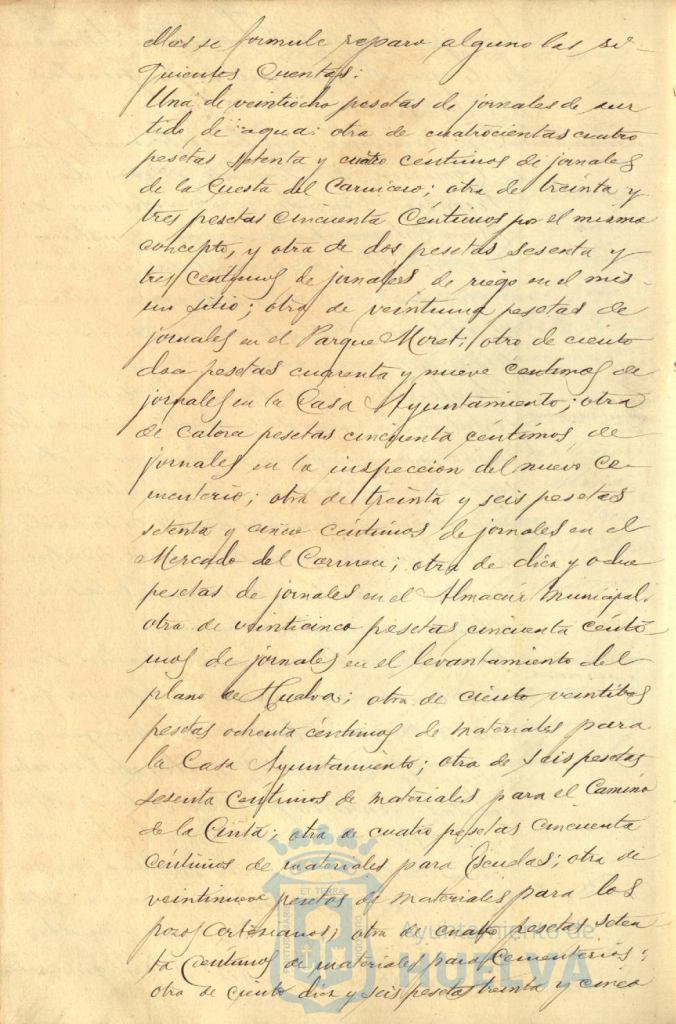 ellas se formule reparo alguno las si-
guientes Cuentas:
Una de veintiocho pesetas de jornales de sur
tido de agua: otra de cuatrocientas cuatro
pesetas setenta y cuatro céntimos de jornales
de la Cuesta del Carnicero; otra de treinta y
tres pesetas cincuenta Céntimos por el mismo
concepto, y otra de dos pesetas sesenta y
tres Centimos de jornales de riego en el mis-
mo sitio; otra de veintiuna pesetas de
jornales en el Parque Moret; otro de ciento
doce pesetas cuarenta y nueve centimos de
jornales en la Casa Ayuntamiento; otra
de catorce pesetas cincuenta céntimos de
jornales en la inspección del nuevo Ce-
menterio; otra de treinta y seis pesetas
setenta y cinco céntimos de jornales en el
Mercado del Carmen; otra de diez y ocho
pesetas de jornales en el Almacén Municipal;
otra de veinticinco pesetas cincuenta cénti-
mos de jornales en el levantamiento del
plano de Huelva; otra de ciento veintitres
pesetas ochenta céntimos de materiales para
la Casa Ayuntamiento; otra de seis pesetas
sesenta Centimos de materiales para el Camino
de la Cinta; otra de cuatro pesetas cincuenta
céntimos de materiales para Escuelas; otra de
veintinueve pesetas de materiales para los
pozos Artesianos; otra de cuatro pesetas seten
ta Centimos de materiales para Cementerios;
otra de ciento diez y seis pesetas treinta y cinco
Ayuntamiento de
HUELVA
ET TERRÆ